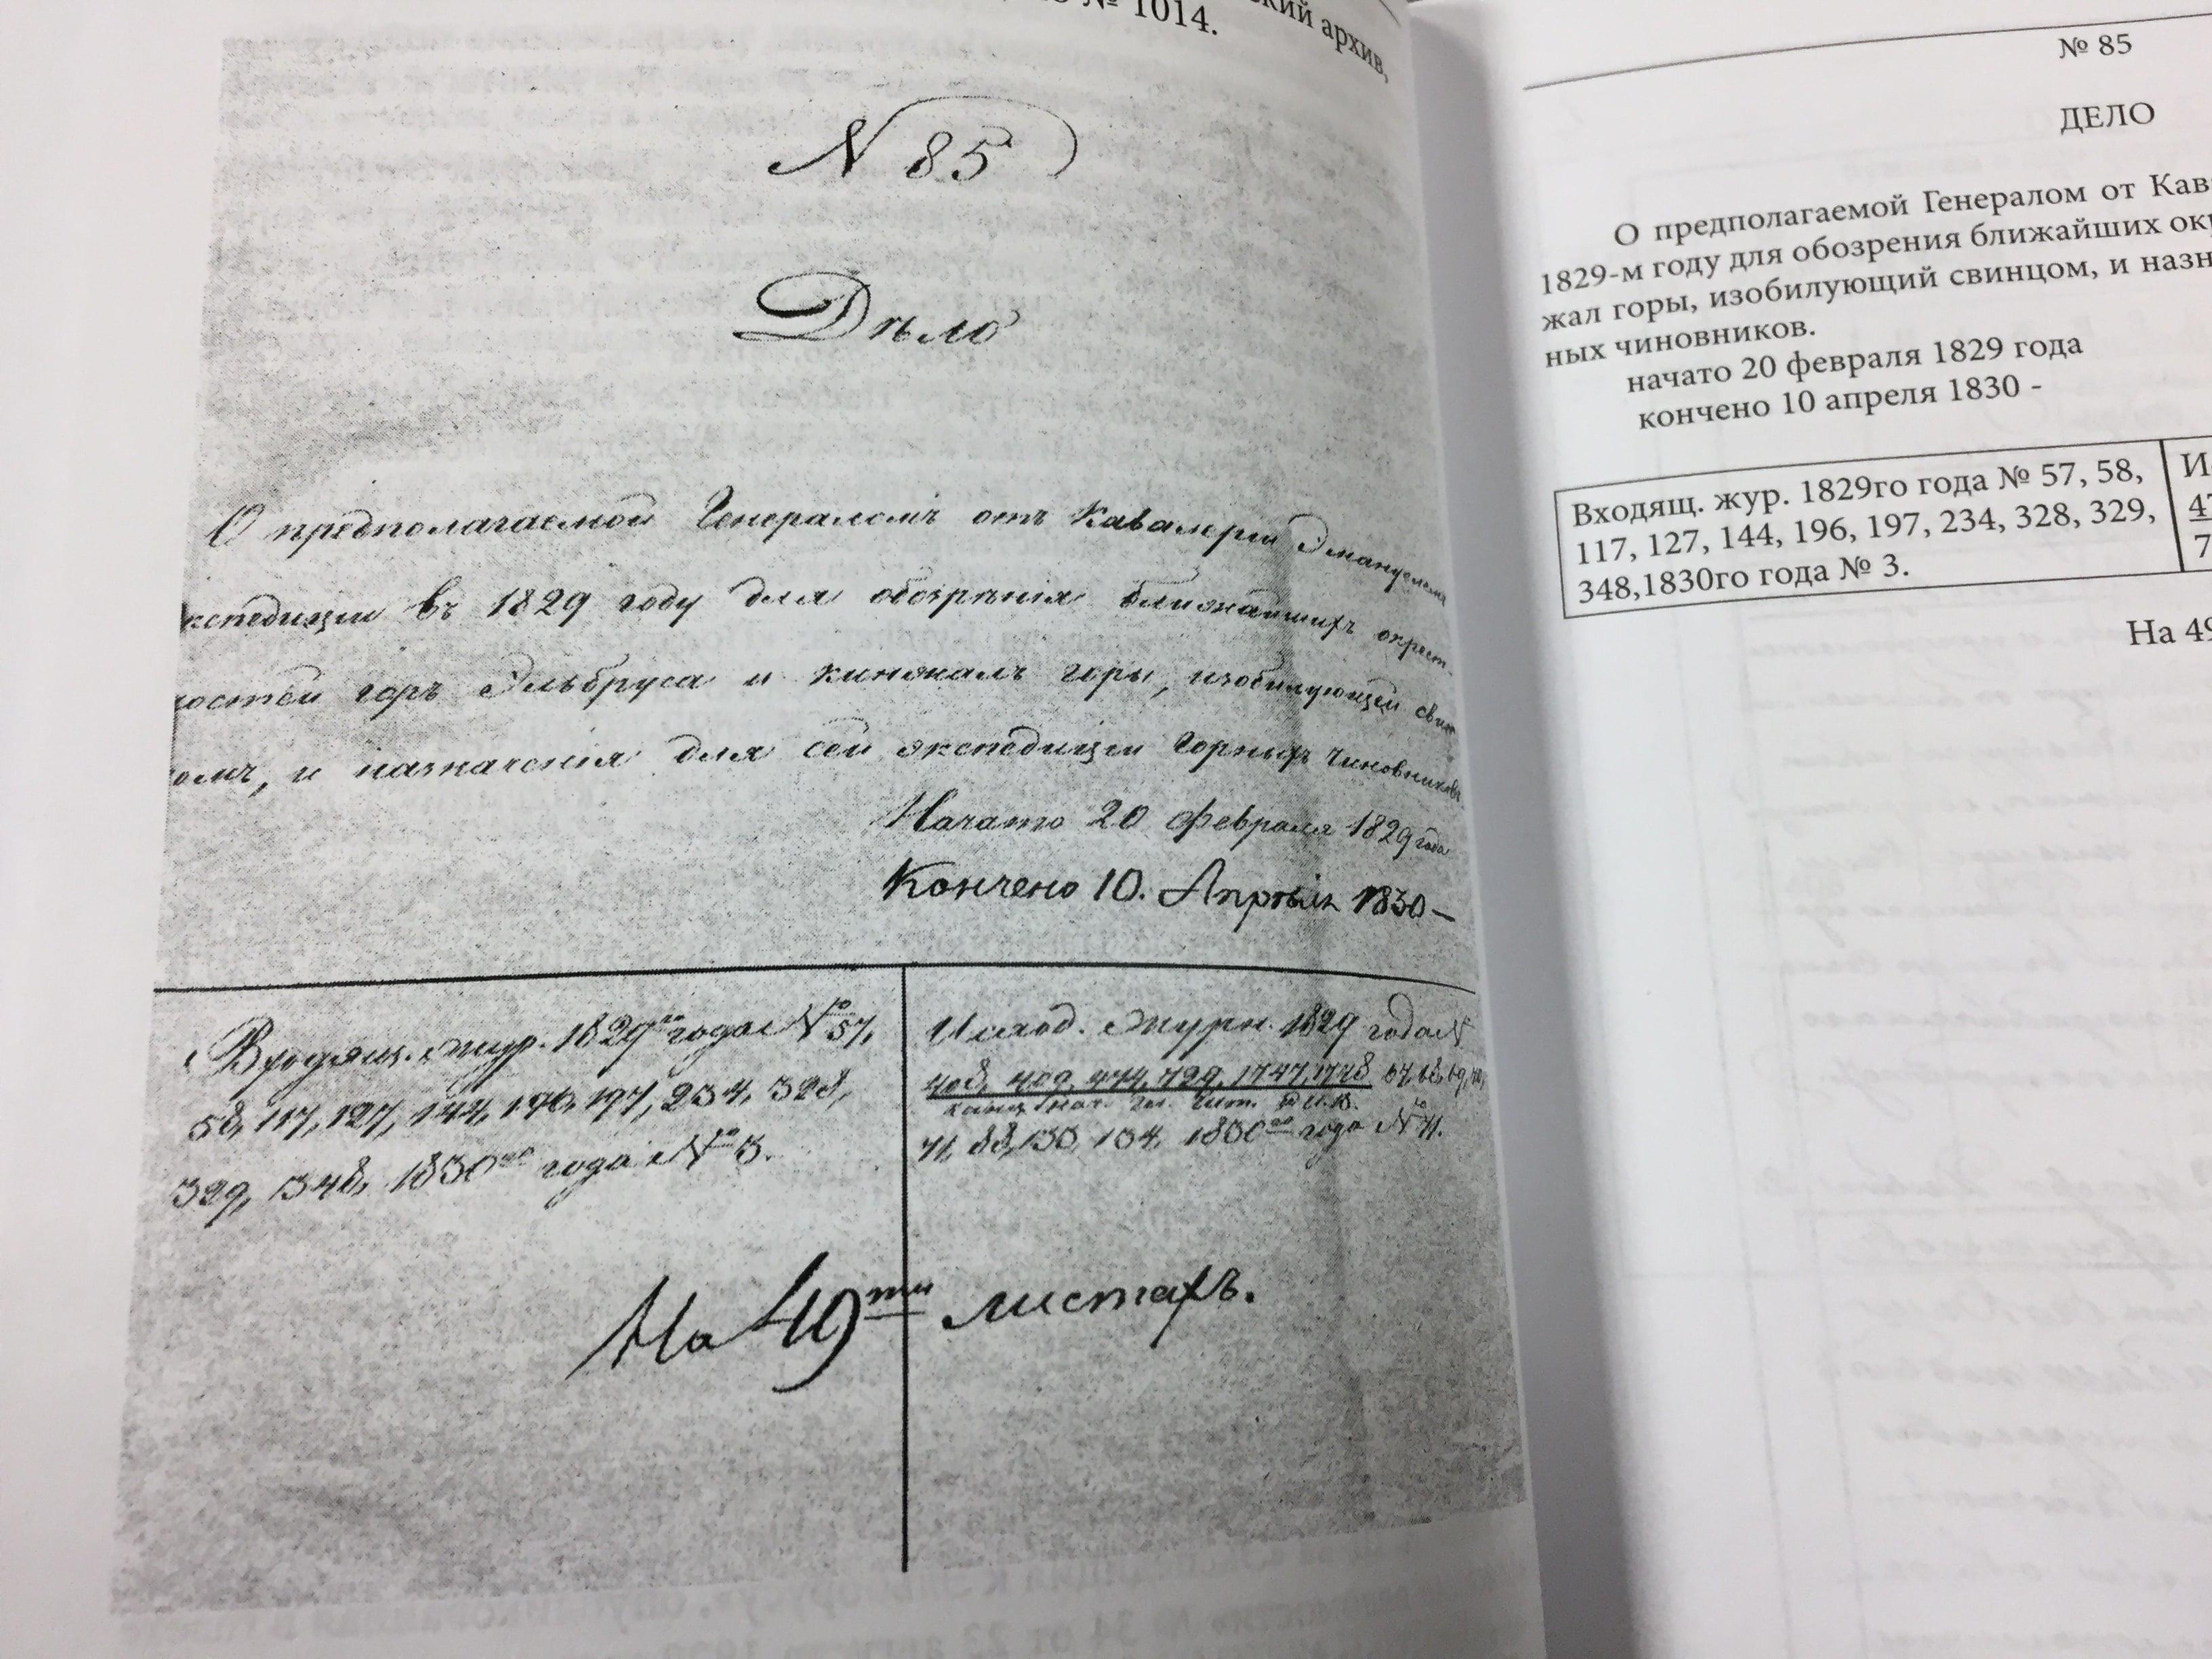 № 1014.
ский архив,
N 85
Дѣло
О предполагаемой Генераломъ отъ Кавалеріи Эмануелемъ
кспедиціи въ 1829 году для обозрѣнія ближайшихъ окрест-
ностей горъ Эльбруса и кинжалъ горы, изобилующей свин-
омъ, и назначенія для сей экспедиціи Горныхъ Чиновниковъ
Начато 20 февраля 1829 года
Кончено 10. Апрѣля 1830 –
Входящ. жур. 1829го года № 57,
58, 117, 127, 144, 196, 197, 234, 328,
329, 348, 1830го года № 3.
Исход. Журн. 1829 года №
408, 409, 474, 729, 1747, 1748 67, 68, 69, 70,
71, 88, 133, 134, 1830го года № 41.
На 49ти листахъ.
№ 85
ДЕЛО
О предполагаемой Генералом от Кав
1829-м году для обозрения ближайших окр
жал горы, изобилующий свинцом, и назн
ных чиновников.
начато 20 февраля 1829 года
кончено 10 апреля 1830 -
Входящ. жур. 1829го года № 57, 58,
117, 127, 144, 196, 197, 234, 328, 329,
348,1830го года № 3.
И
47
7
На 49